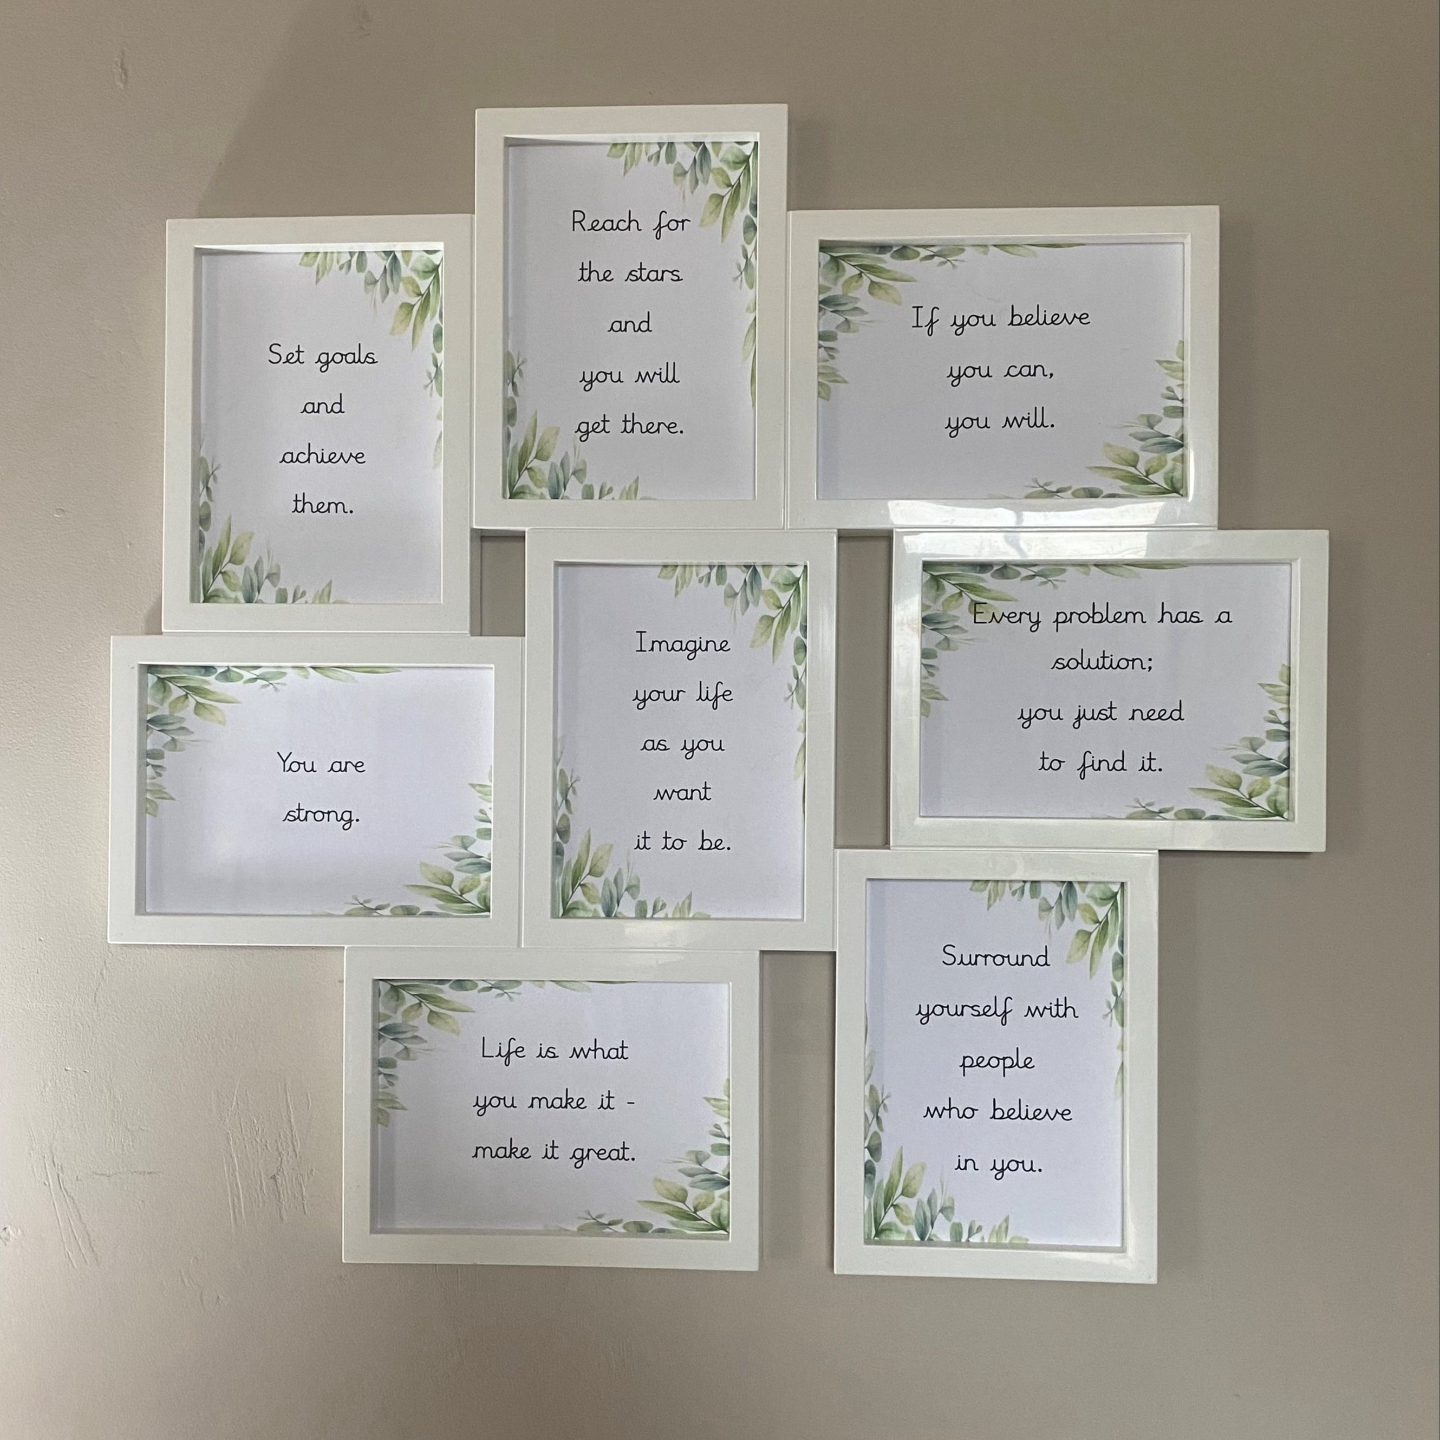 Set goals
and
achieve
them.
Reach for
the stars
and
you will
get there.
If you believe
you can,
you will.
You are
strong.
Imagine
your life
as you
want
it to be.
Every problem has a
solution;
you just need
to find it.
Life is what
you make it -
make it great.
Surround
yourself with
people
who believe
in you.